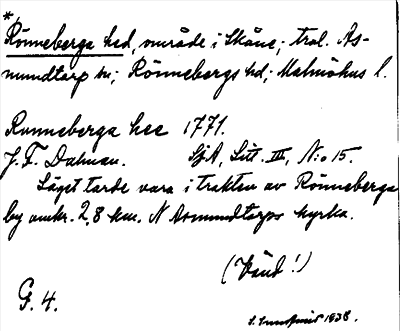 *
Rönneberga hed, område i Skåne; trol. As-
mundtorp sn; Rönnebergs hd; Malmöhus l.
Runneberga hee 1771.
J. F. Dalman. SjA, Litt. III, N:o 15.
Läget torde vara i trakten av Rönneberga
by omkr. 2,8 km. N Asmundtorps kyrka.
(Vänd!)
G. 4.
S. 1938.